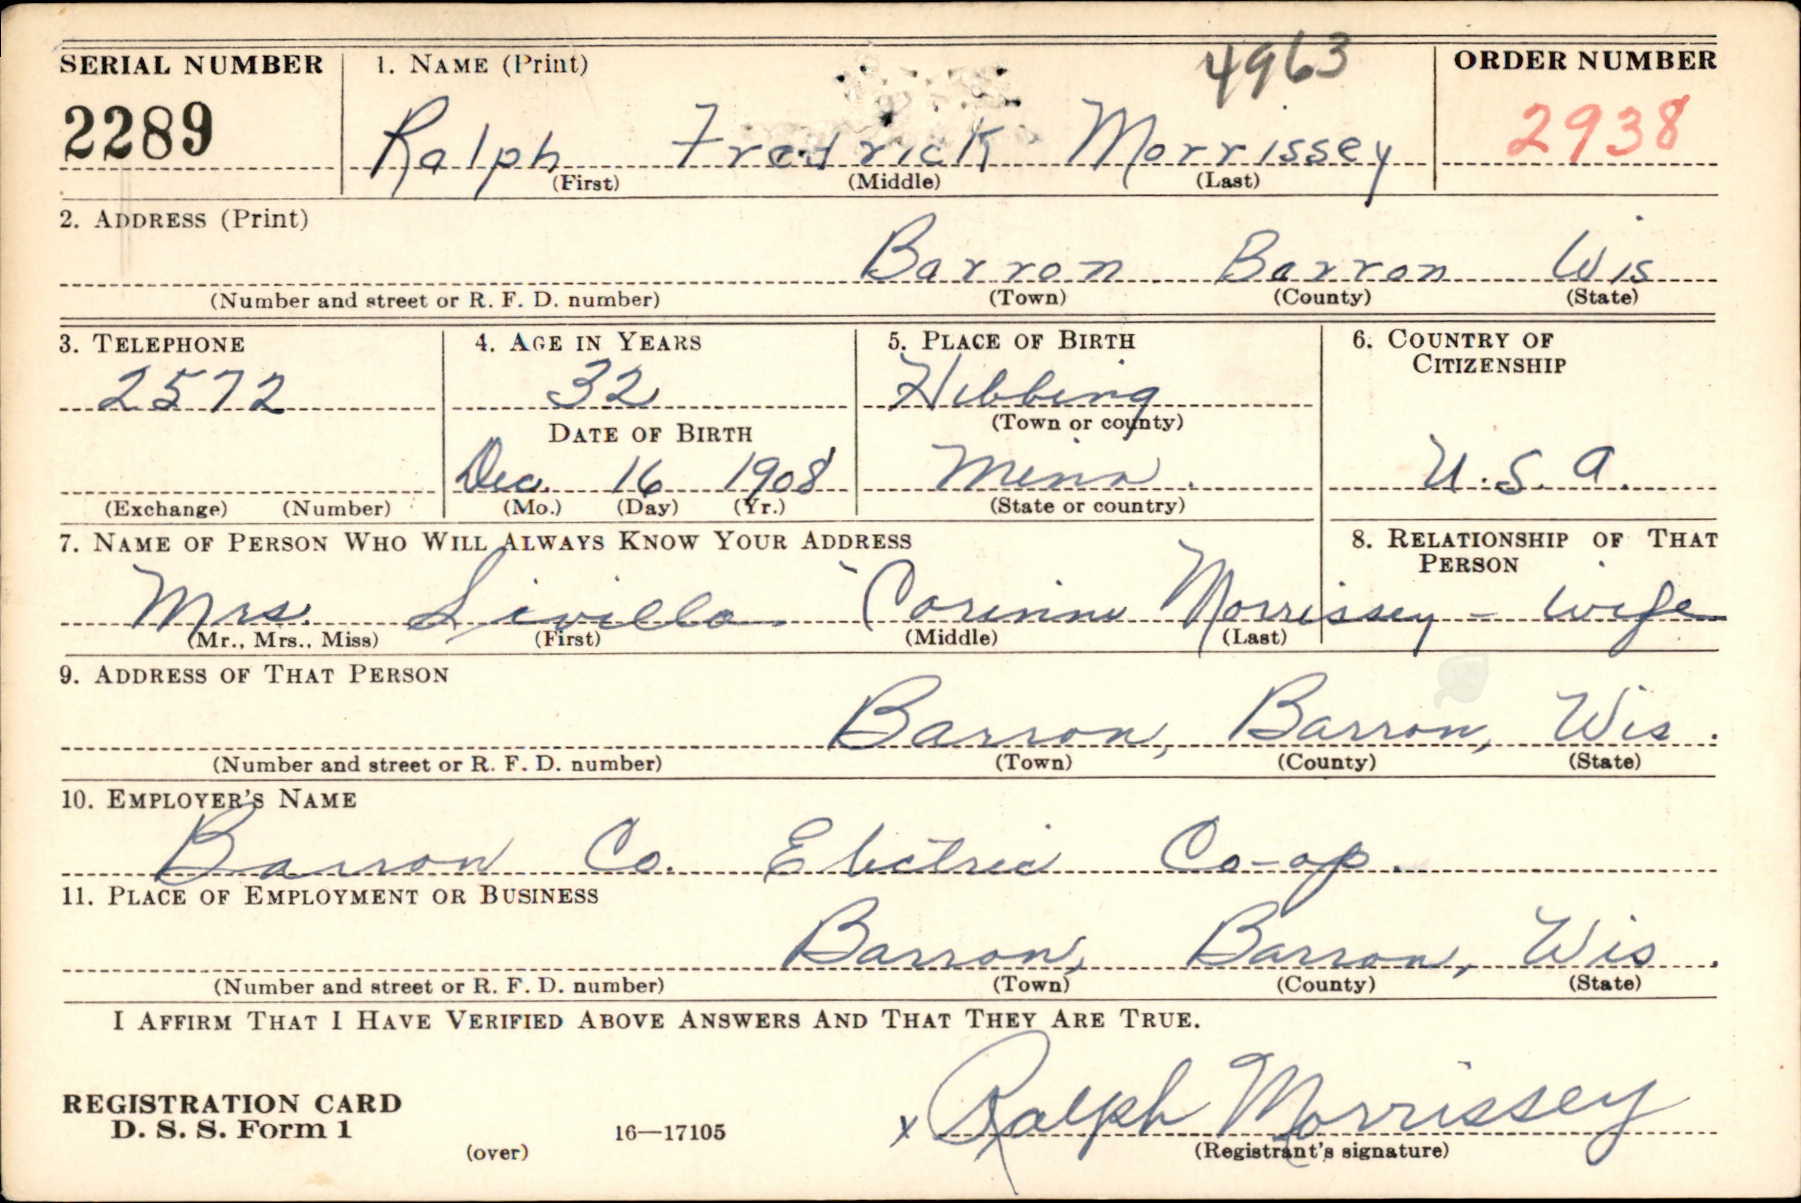 SERIAL NUMBER 1. NAME (Print) 4963 ORDER NUMBER
2289 Ralph Fredrick Morrissey 2938
(First) (Middle) (Last)
2. ADDRESS (Print)
Barron Barron Wis
(Number and street or R. F. D. number) (Town) (County) (State)
3. TELEPHONE 4. AGE IN YEARS 5. PLACE OF BIRTH 6. COUNTRY OF CITIZENSHIP
2572 32 Hibbing
(Town or county)
DATE OF BIRTH
Dec. 16 1908 Minn. U.S.A.
(Exchange) (Number) (Mo.) (Day) (Yr.) (State or country)
7. NAME OF PERSON WHO WILL ALWAYS KNOW YOUR ADDRESS 8. RELATIONSHIP OF THAT PERSON
Mrs. Sivilla Corinne Morrissey - wife
(Mr., Mrs., Miss) (First) (Middle) (Last)
9. ADDRESS OF THAT PERSON
Barron, Barron, Wis.
(Number and street or R. F. D. number) (Town) (County) (State)
10. EMPLOYER'S NAME
Barron Co. Electric Co-op.
11. PLACE OF EMPLOYMENT OR BUSINESS
Barron, Barron, Wis.
(Number and street or R. F. D. number) (Town) (County) (State)
I AFFIRM THAT I HAVE VERIFIED ABOVE ANSWERS AND THAT THEY ARE TRUE.
REGISTRATION CARD
D. S. S. Form 1 16—17105 x Ralph Morrissey
(over) (Registrant's signature)